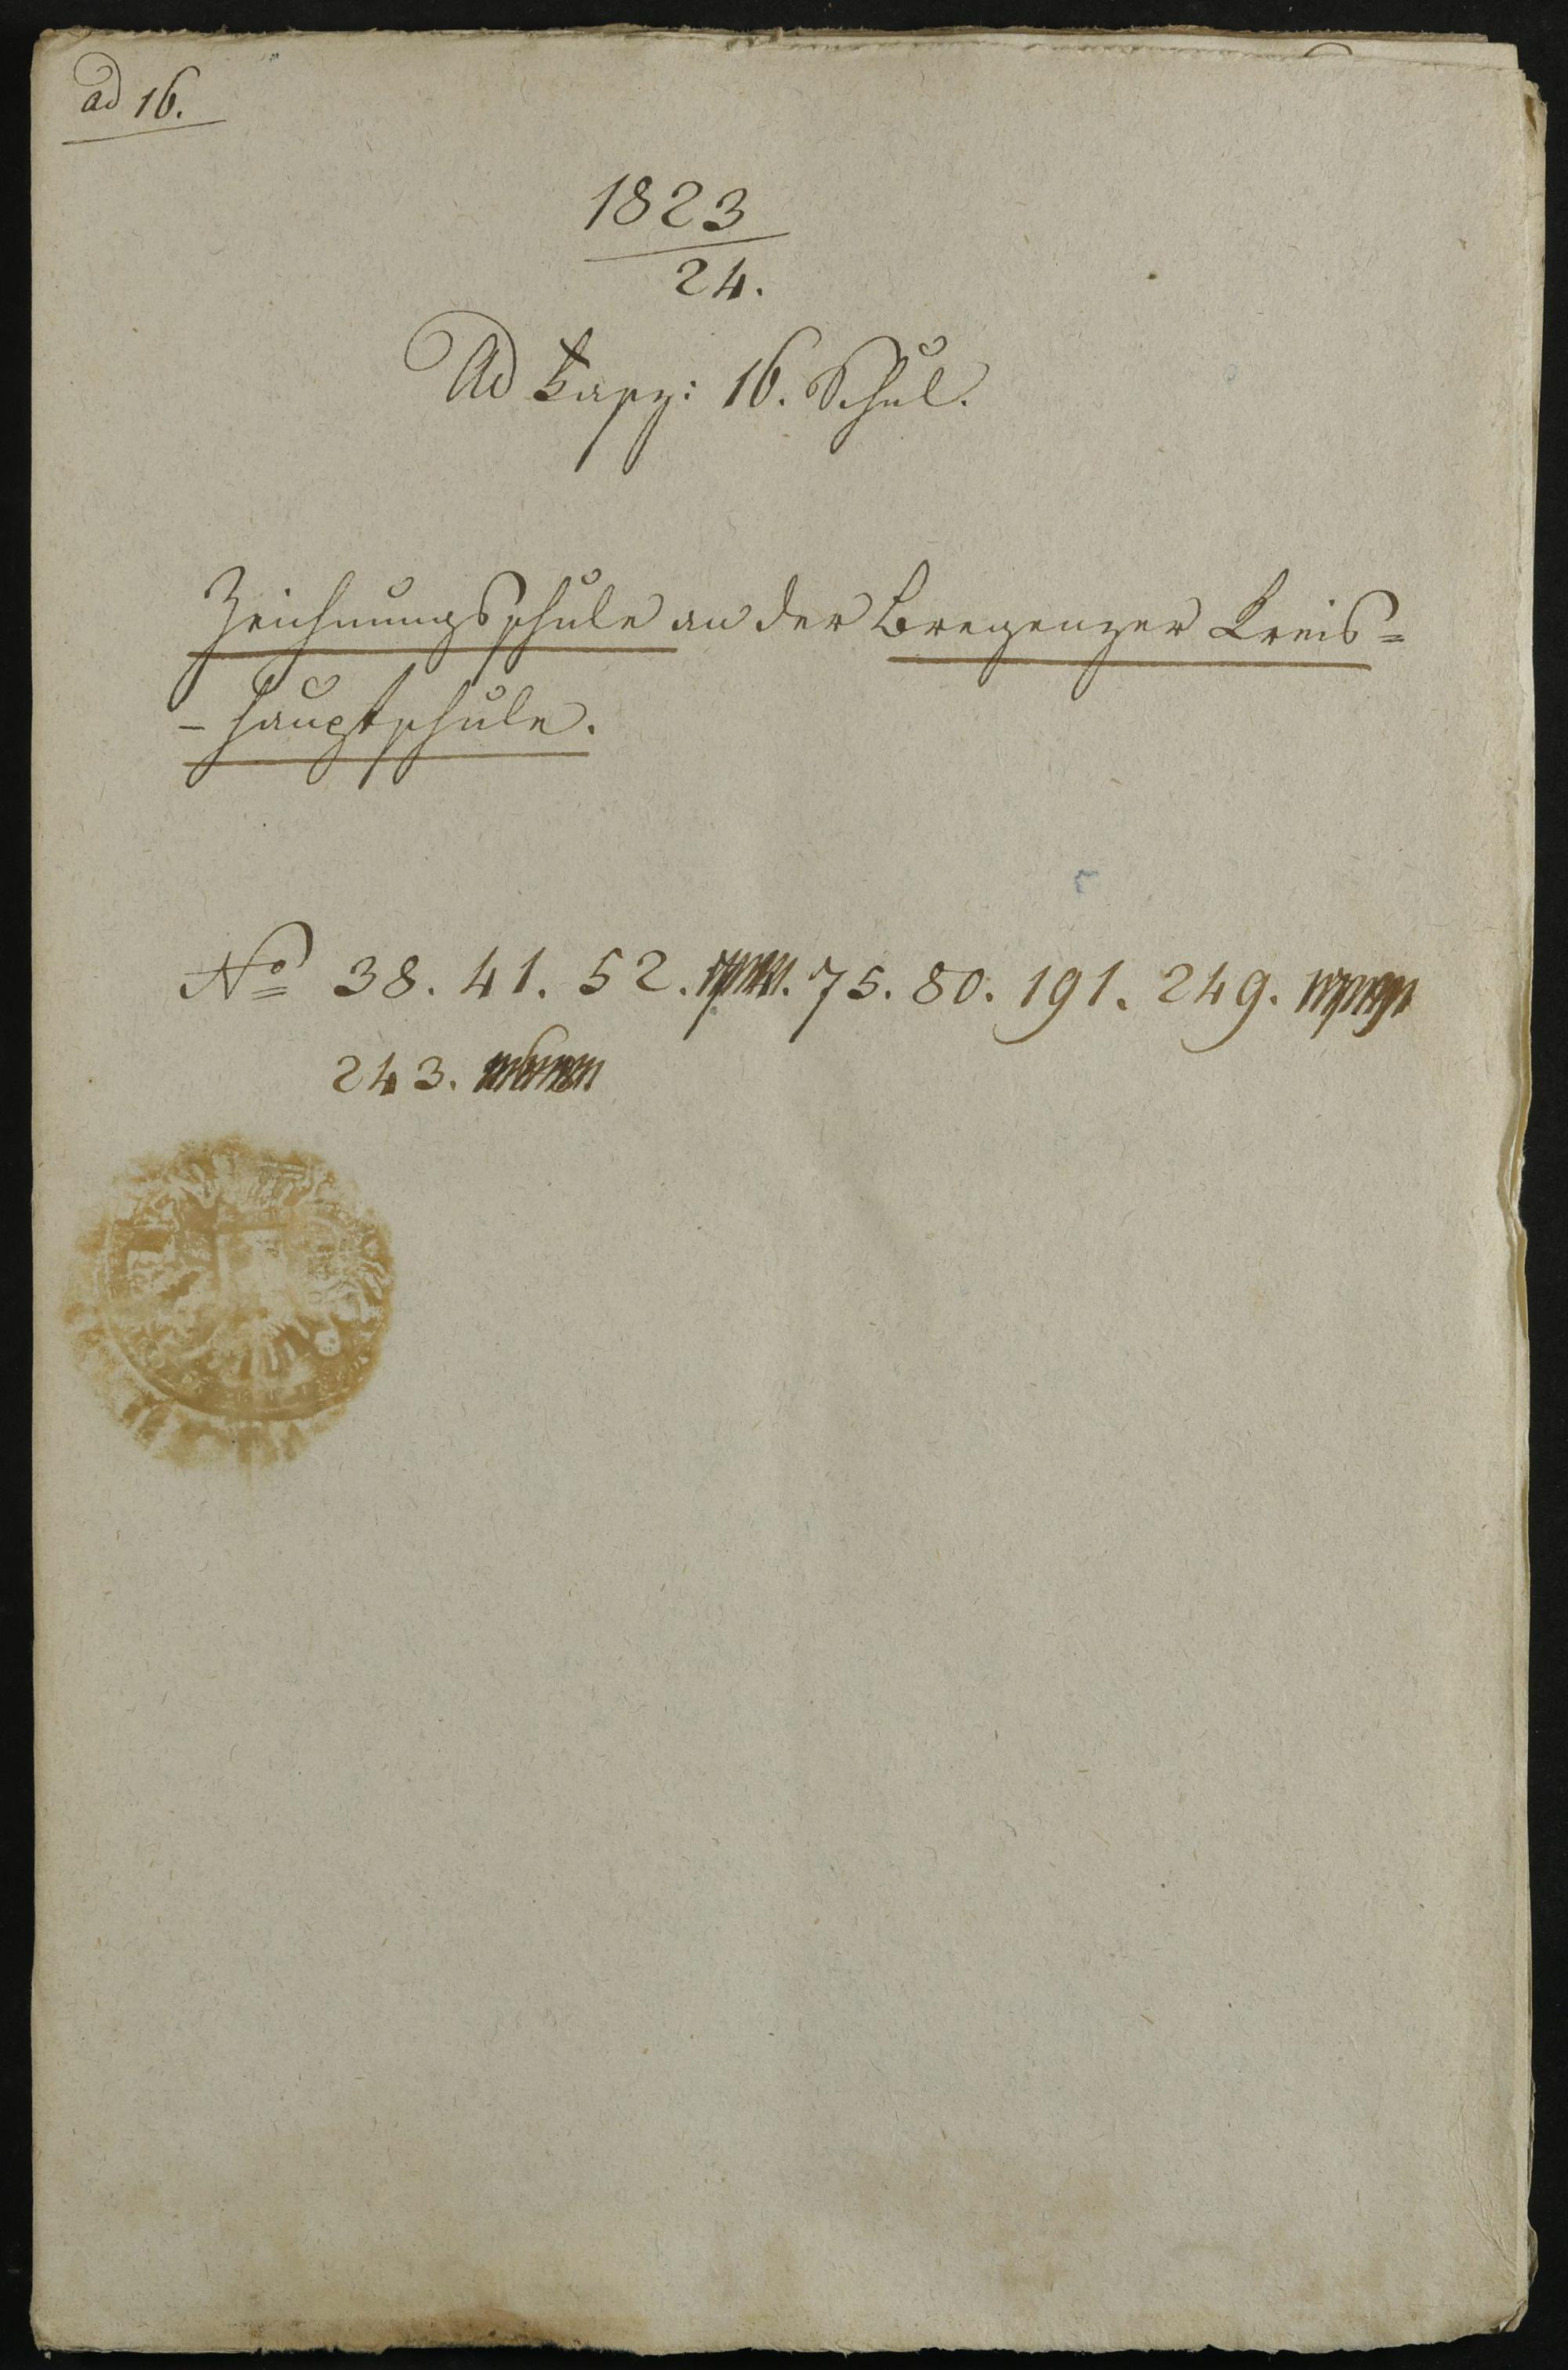 ad 16.
1823
24.
Ad Fasz: 16. Schul.
Zeichnungsschule an der Bregenzer Kreis=
- hauptschule.
No 38. 41. 52. 75. 80. 191. 249.
243.